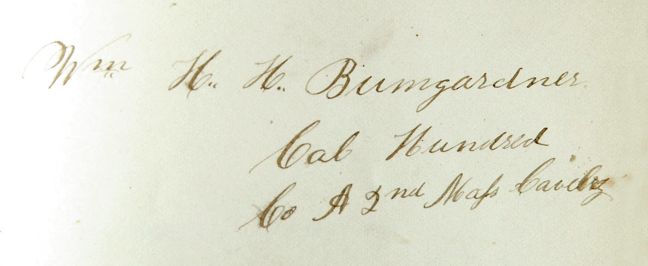 Wm H. H. Bumgardner
Cal Hundred
Co A 2nd Mass Cavelry